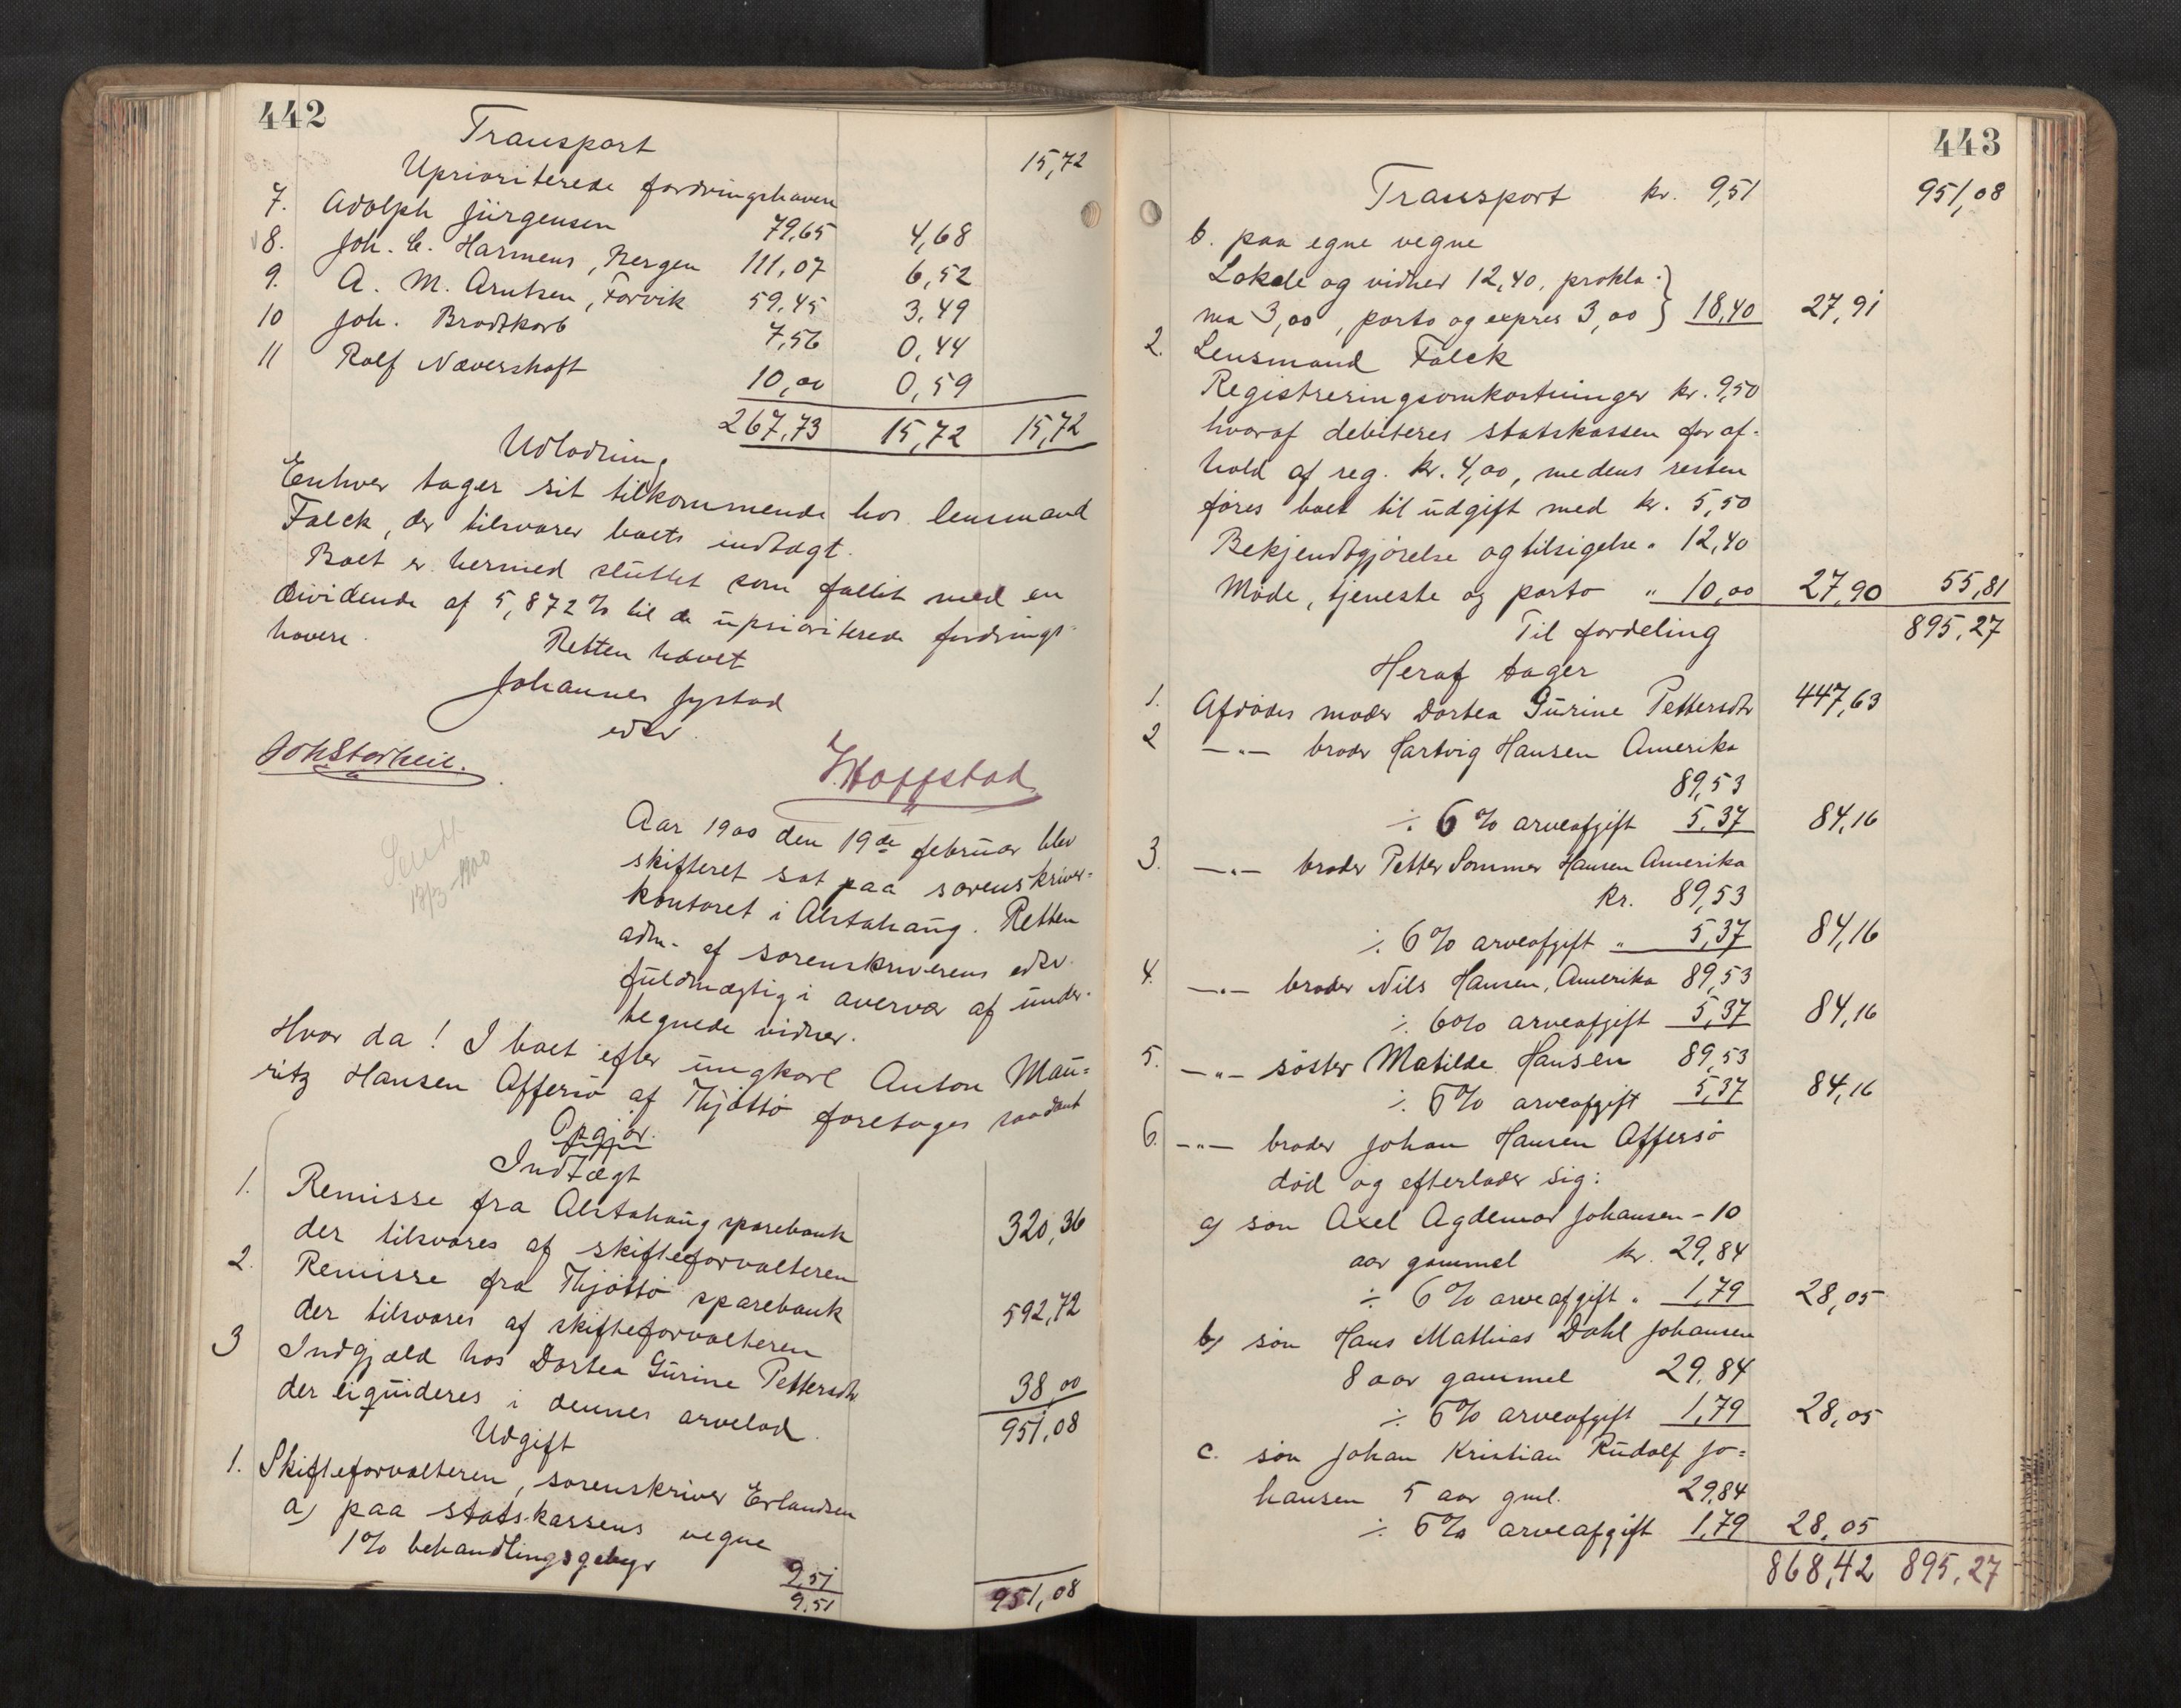 442
Transport 15,72
Uprioriterede fordringshavere
7. Adolph Jürgensen 79,65 4,68
8. Joh. C. Harmens, Bergen 111,07 6,52
9. A. M. Arntsen, Forvik 59,45 3,49
10 Joh. Brodtkorb 7,56 0,44
11 Rolf Næverskoft 10,00 0,59
267,73 15,72 15,72
Udlodning
Enhver tager sit tilkommende hos lensmand
Falck, der tilsvarer boets indtægt.
Boet er hermed sluttet som fallit med en
dividende af 5,872% til de uprioriterede fordrings-
havere.
Retten hævet
Johannes Jystad
edsv.
J. Hoffstad
Aar 1900 den 19de februar blev
skifteret sat paa sorenskriver-
kontoret i Alstahaug. Retten
adm. af sorenskriverens edsv.
fuldmægtig i overvær af under-
tegnede vidner.
Sendt
13/3-1900
Hvor da! I boet efter ungkarl Anton Mau-
ritz Hansen Offersø af Thjøttø foretages saadant
Opgjør.
Indtægt
1. Remisse fra Alstahaug sparebank
der tilsvares af skifteforvalteren 320,36
2. Remisse fra Thjøttø sparebank
der tilsvares af skifteforvalteren 592,72
3 Indgjæld hos Dortea Gurine Pettersdtr
der liquideres i dennes arvelod. 38,00
951,08
Udgift
1. Skifteforvalteren, sorenskriver Erlandsen
a) paa statskassens vegne
1% behandlingsgebyr 9,51
9,51 951,08
443
Transport kr. 9,51 951,08
b. paa egne vegne
Lokale og vidner 12,40, prokla-
ma 3,00, porto og expres 3,00 } 18,40 27,91
2. Lensmand Falck
Registreringsomkostninger kr. 9,50
hvoraf debiteres statskassen for af-
hold af reg. kr. 4,00, medens resten
føres boet til udgift med kr. 5,50
Bekjendtgjørelse og tilsigelse " 12,40
Møde, tjeneste og porto " 10,00 27,90 55,81
Til fordeling 895,27
Heraf tager
1. Afdødes moder Dortea Gurine Pettersdtr 447,63
2 —"— broder Hartvig Hansen Amerika
89,53
÷ 6% arveafgift 5,37 84,16
3. —"— broder Petter Sommer Hansen Amerika
kr. 89,53
÷ 6% arveafgift " 5,37 84,16
4. —"— broder Nils Hansen, Amerika 89,53
÷ 6% arveafgift 5,37 84,16
5. —"— søster Matilde Hansen 89,53
÷ 6% arveafgift 5,37 84,16
6. —"— broder Johan Hansen Offersø
død og efterlader sig:
a) søn Axel Agdemar Johansen - 10
aar gammel kr. 29,84
÷ 6% arveafgift " 1,79 28,05
b) søn Hans Mathias Dahl Johansen
8 aar gammel 29,84
÷ 6% arveafgift 1,79 28,05
c. søn Johan Kristian Rudolf Jo-
hansen 5 aar gml. 29,84
÷ 6% arveafgift 1,79 28,05
868,42 895,27